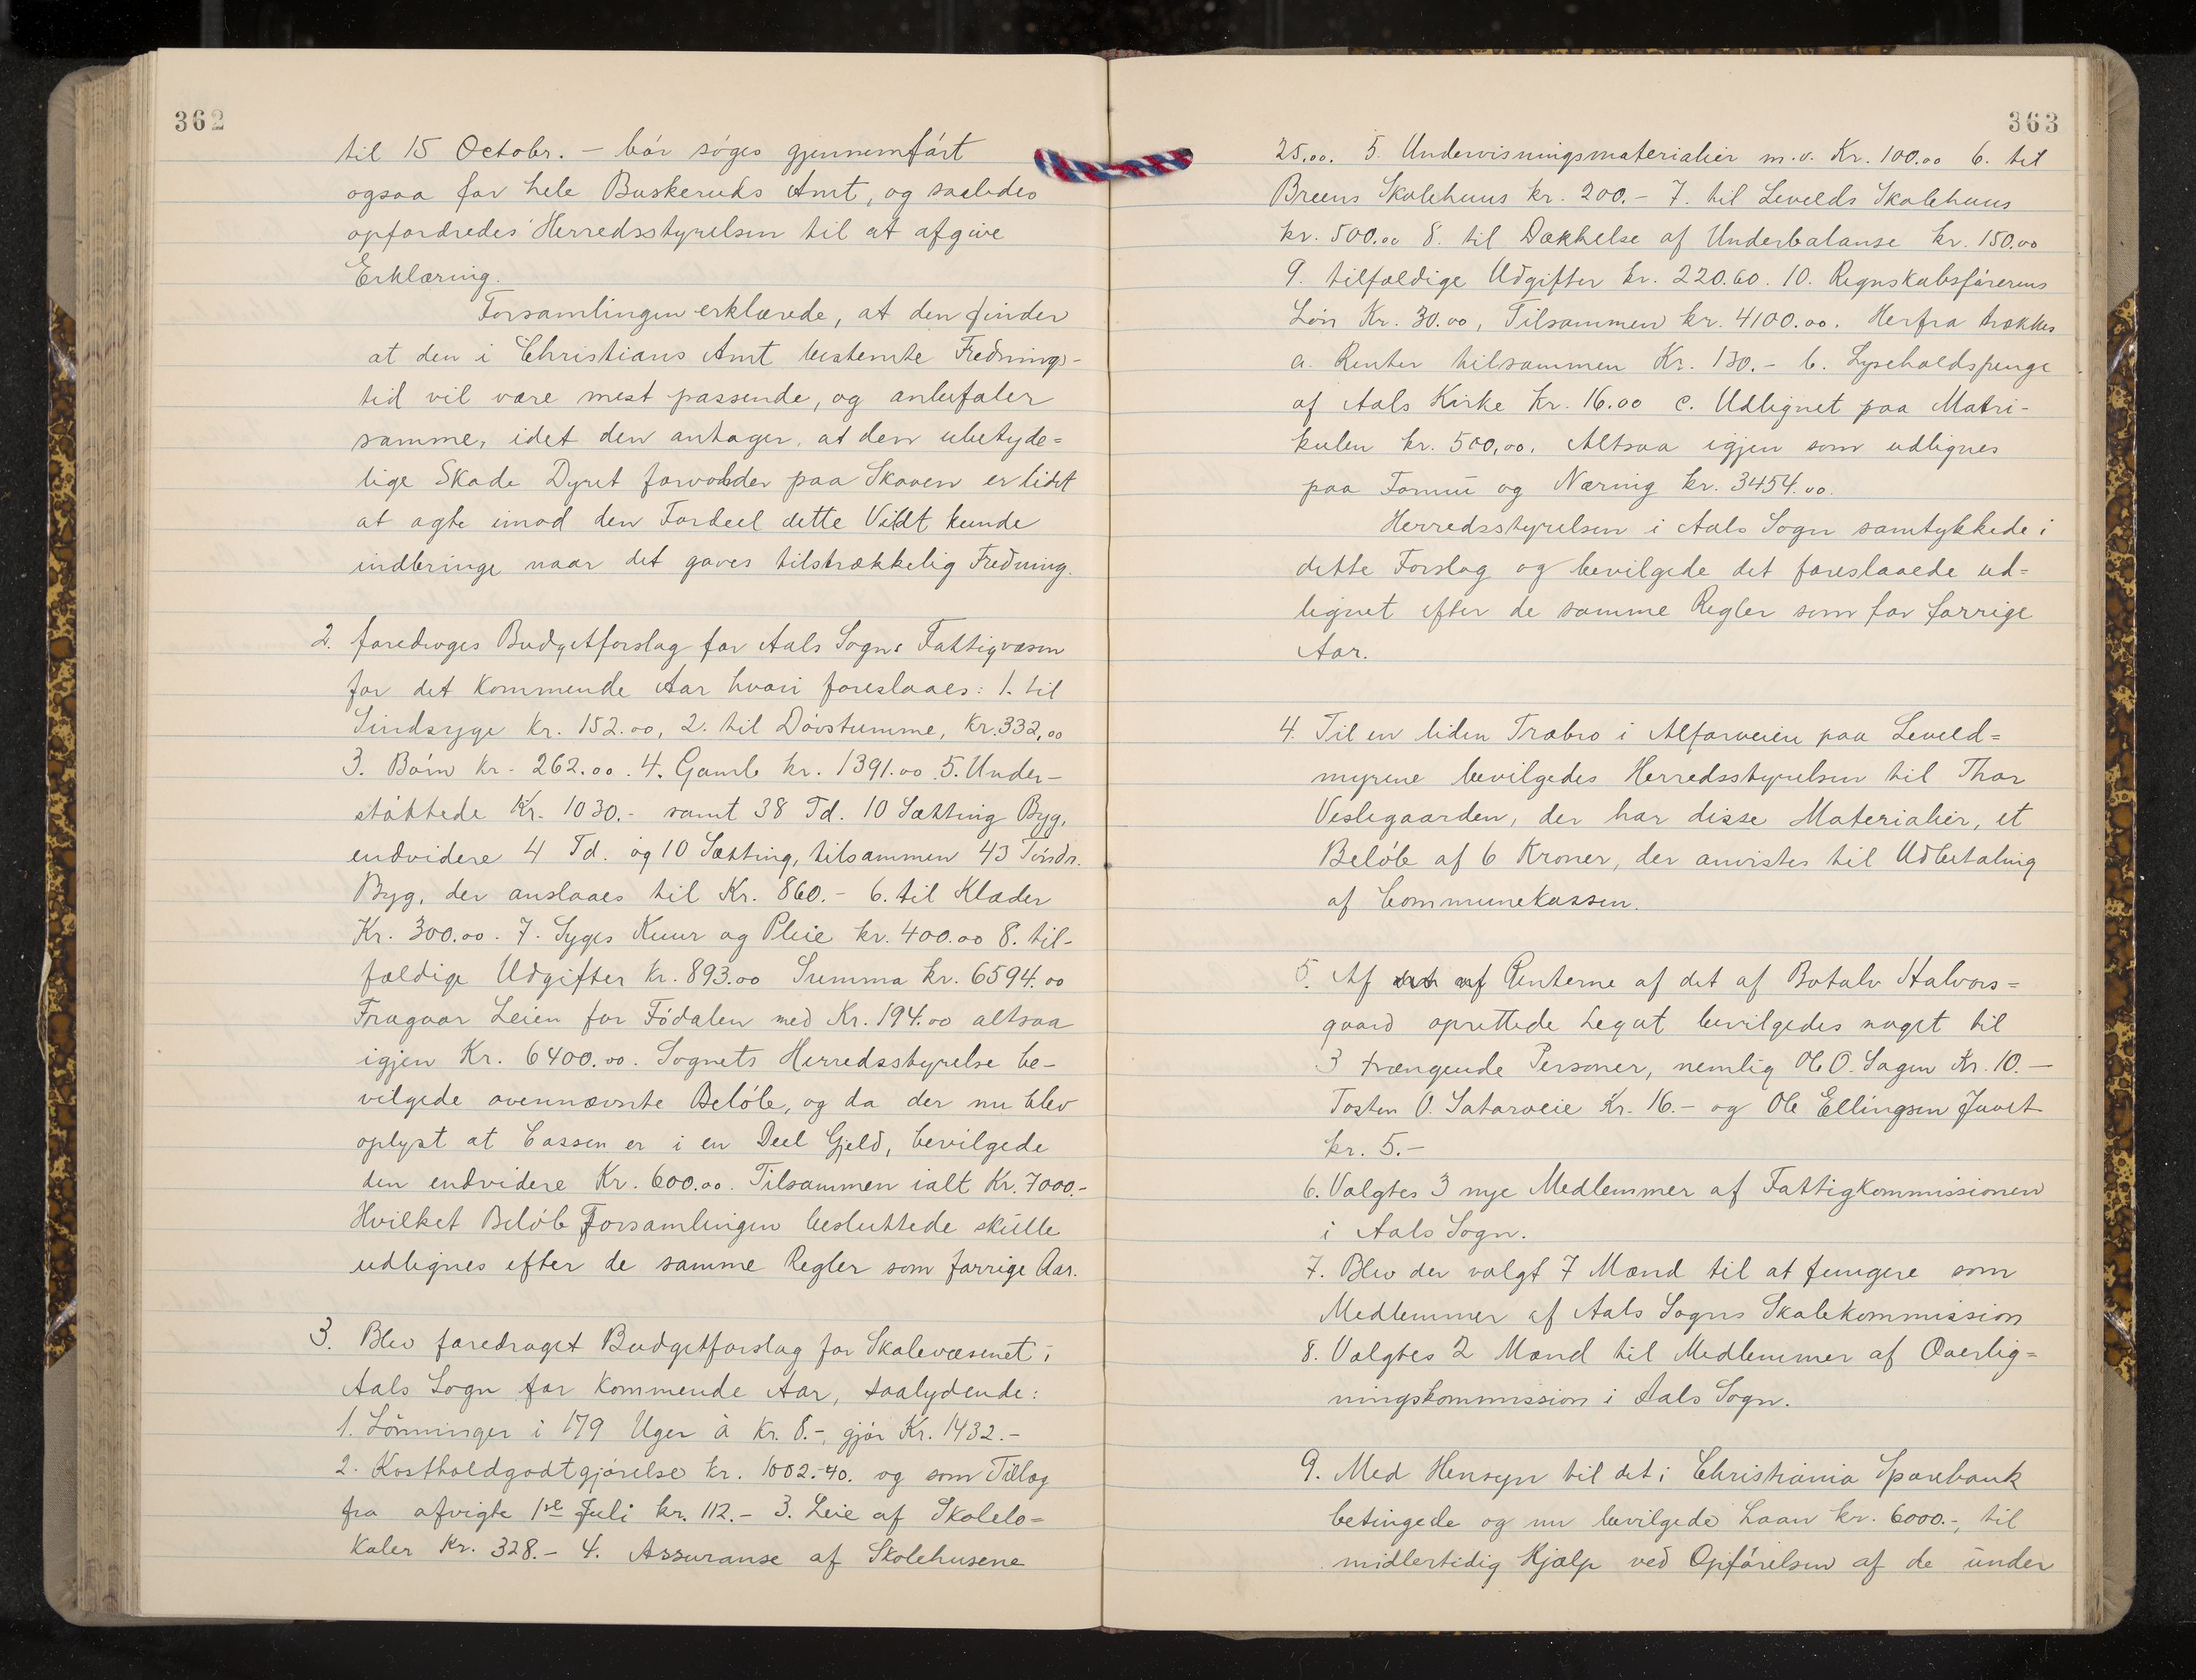 362
til 15 Octobr. – bør søges gjennemført
ogsaa for hele Buskeruds Amt, og saaledes
opfordredes Herredsstyrelsen til at afgive
Erklæring.
Forsamlingen erklærede, at den finder
at den i Christians Amt bestemte Frednings-
tid vil være mest passende, og anbefaler
samme, idet den antager, at den ubetyde=
lige Skade Dyret forvolder paa Skoven er lidet
at agte imod den Fordeel dette Vildt kunde
indbringe naar det gaves tilstrækkelig Fredning.
2. foredroges Budgetforslag for Aals Sogns Fattigvæsen
for det kommende Aar hvori foreslaaes: 1. til
Sindsyge kr. 152.00, 2. til Døvstumme, kr. 332,00
3. Børn kr. 262.00. 4. Gamle kr. 1391.00. 5. Under-
støttede Kr. 1030.- samt 38 Td. 10 Sætting Byg,
endvidere 4 Td. og 10 Sætting, tilsammen 43 Tøndr.
Byg, der anslaaes til Kr. 860.- 6. til Klæder
Kr. 300.00. 7. Syges Kuur og Pleie kr. 400.00 8. til-
fældige Udgifter kr. 893.00 Summa kr. 6594.00
Fragaar Leien for Fødalen med Kr. 194.00 altsaa
igjen Kr. 6400.00. Sognets Herredsstyrelse be-
vilgede ovennævnte Beløb, og da der nu blev
oplyst at Cassen er i en Deel Gjeld, bevilgede
den endvidere Kr. 600.00. Tilsammen ialt Kr. 7000.-
Hvilket Beløb Forsamlingen besluttede skulle
udlignes efter de samme Regler som forrige Aar.
3. Blev foredraget Budgetforslag for Skolevæsenet i
Aals Sogn for kommende Aar, saalydende:
1. Lønninger i 179 Uger à kr. 8.-, gjør Kr. 1432.-
2. Kostholdgodtgjørelse kr. 1002.40. og som Tillæg
fra afvigte 1ste Juli kr. 112.- 3. Leie af Skolelo=
kaler Kr. 328.- 4. Assuranse af Skolehusene
363
25.00. 5. Undervisningsmaterialier m.v. Kr. 100.00 6. til
Breens Skolehuus kr. 200.- 7. til Levelds Skolehuus
kr. 500.00 8. til Dækkelse af Underbalanse kr. 150.00
9. tilfældige Udgifter kr. 220.60. 10. Regnskabsførerens
Løn Kr. 30.00, Tilsammen kr. 4100.00. Herfra trækkes
a. Renter tilsammen Kr. 130.- b. Lyseholdspenge
af Aals Kirke Kr. 16.00 c. Udlignet paa Matri-
kulen kr. 500,00. Altsaa igjen som udlignes
paa Formu og Næring kr. 3454.00.
Herredsstyrelsen i Aals Sogn samtykkede i
dette Forslag og bevilgede det foreslaaede ud=
lignet efter de samme Regler som for forrige
Aar.
4. Til en liden Træbro i Alfarveien paa Leveld=
myrene bevilgedes Herredsstyrelsen til Thor
Veslegaarden, der har disse Materialier, et
Beløb af 6 Kroner, der anvistes til Udbetaling
af Communekassen.
5. Af det af Renterne af det af Botolv Halvors=
gaard oprettede Legat bevilgedes noget til
3 trængende Personer, nemlig Ole O. Sagen Kr. 10.–
Tosten O. Sataroeie Kr. 16.- og Ole Ellingsen Juvet
kr. 5.-
6. Valgtes 3 nye Medlemmer af Fattigkommissionen
i Aals Sogn.
7. Blev der valgt 7 Mænd til at fungere som
Medlemmer af Aals Sogns Skolekommission
8. Valgtes 2 Mænd til Medlemmer af Overlig=
ningskommission i Aals Sogn.
9. Med Hensyn til det i Christiania Sparebank
betingede og nu bevilgede Laan kr. 6000.-, til
midlertidig Hjælp ved Opførelsen af de under